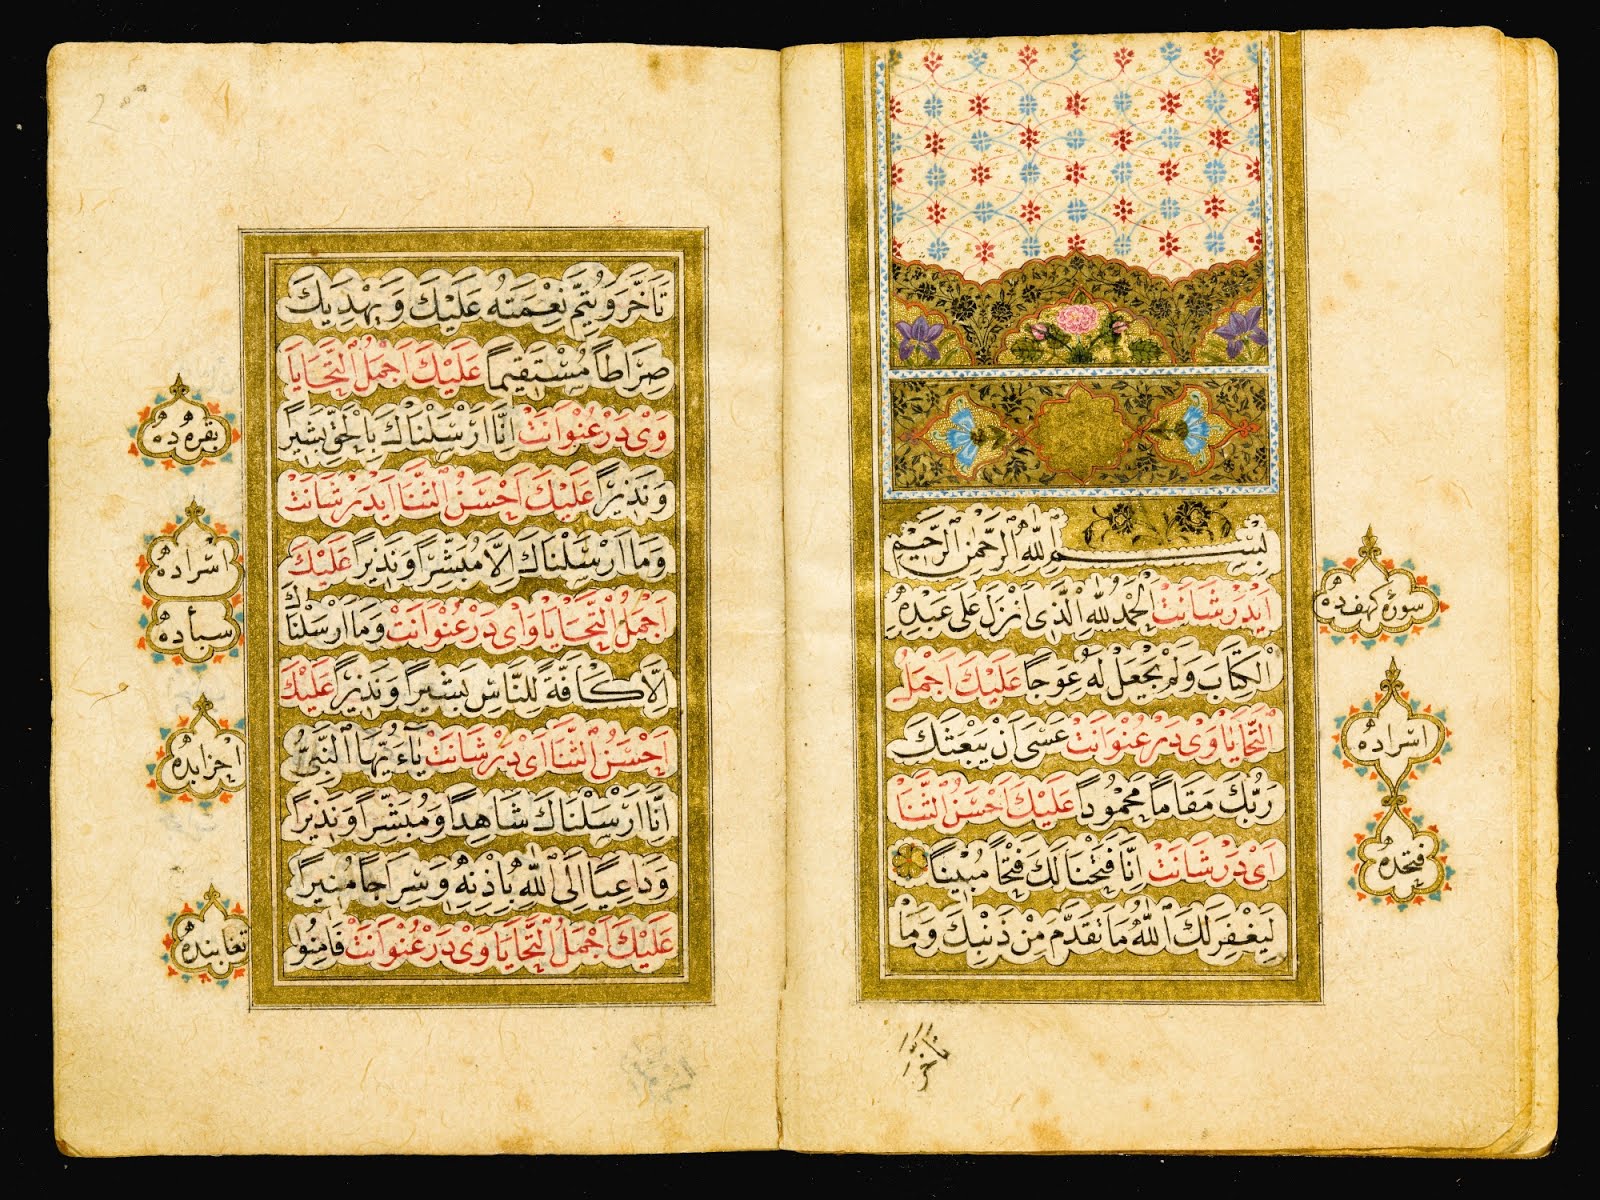 بِسْمِ اللّٰهِ الرَّحْمٰنِ الرَّحِيْمِ
اَيدَرْشَانَتْ اَلْحَمْدُ لِلّٰهِ الَّذٖى اَنْزَلَ عَلٰى عَبْدِهِ
الْكِتَابَ وَلَمْ يَجْعَلْ لَهُ عِوَجًا عَلَيْكَ اَجْمَلُ
التَّحَايَا وَىْ دَرْ عُنْوَانَتْ عَسٰى اَنْ يَبْعَثَكَ
رَبُّكَ مَقَامًا مَحْمُودًا عَلَيْكَ اَحْسَنُ الثَّنَا
اَىْ دَرْ شَانَتْ اِنَّا فَتَحْنَا لَكَ فَتْحًا مُبٖينًا
لِيَغْفِرَ لَكَ اللّٰهُ مَا تَقَدَّمَ مِنْ ذَنْبِكَ وَمَا
تَاَخَّرَ
سورۀ كهفده
اسراده
فتحده
تَاَخَّرَ وَيُتِمَّ نِعْمَتَهُ عَلَيْكَ وَيَهْدِيَكَ
صِرَاطًا مُسْتَقٖيمًا عَلَيْكَ اَجْمَلُ التَّحَايَا
وَىْ دَرْ عُنْوَانَتْ اِنَّا اَرْسَلْنَاكَ بِالْحَقِّ بَشٖيرًا
وَنَذٖيرًا عَلَيْكَ اَحْسَنُ الثَّنَا اَيدَرْشَانَتْ
وَمَا اَرْسَلْنَاكَ اِلَّا مُبَشِّرًا وَنَذٖيرًا عَلَيْكَ
اَجْمَلُ التَّحَايَا وَاىْ دَرْ عُنْوَانَتْ وَمَا اَرْسَلْنَاكَ
اِلَّا كَافَّةً لِلنَّاسِ بَشٖيرًا وَنَذٖيرًا عَلَيْكَ
اَحْسَنُ الثَّنَا اَىْ دَرْ شَانَتْ يَاءَيُّهَا النَّبِىُّ
اِنَّا اَرْسَلْنَاكَ شَاهِدًا وَمُبَشِّرًا وَنَذٖيرًا
وَدَاعِيًا اِلَى اللّٰهِ بِاِذْنِهٖ وَسِرَاجًا مُنٖيرًا
عَلَيْكَ اَجْمَلُ التَّحَايَا وَىْ دَرْ عُنْوَانَتْ فَاٰمِنُوا
بقره ده
اسراده
سبأده
احزابده
تغابنده
2